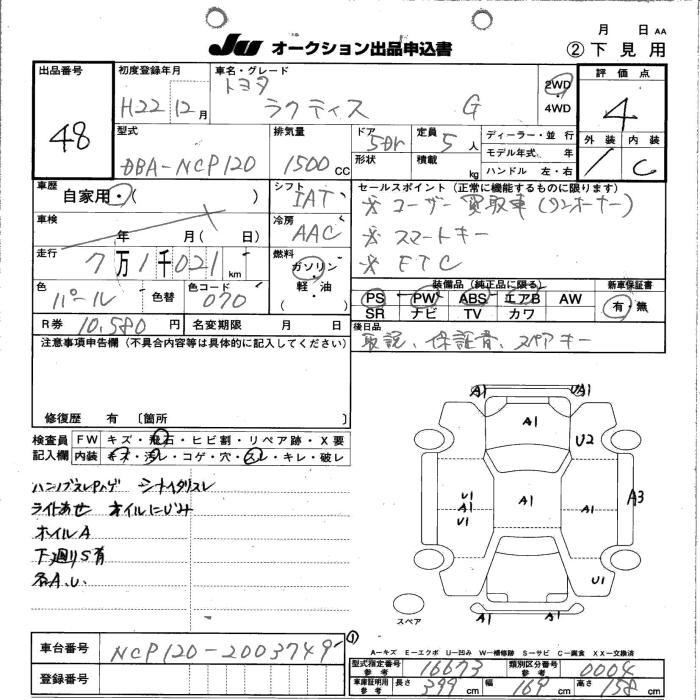 月 日 AA
JU オークション出品申込書 ②下見用
出品番号 48
初度登録年月 H22 12月
車名・グレード トヨタ ラクティス G
2WD
4WD
評価点 4
外装 内装
/ C
型式 DBA-NCP120
排気量 1500cc
ドア 5Dr
形状
定員 5人
積載 kg
ディーラー・並行
モデル年式 年
ハンドル 左・右
車歴 自家用・( )
シフト IAT
セールスポイント (正常に機能するものに限ります)
※ユーザー買取車(ワンオーナー)
※スマートキー
※ETC
車検 年 月( 日)
冷房 AAC
走行 7万1千021km
燃料 ガソリン・軽・油 ( )
色 パール 色替 色コード 070
装備品 (純正品に限る) 新車保証書
PS PW ABS エアB AW 有・無
SR ナビ TV カワ
R券 10,580円 名変期限 月 日
後日品
取説、保証書、スペアキー
注意事項申告欄 (不具合内容等は具体的に記入してください)
修復歴 有 〔箇所 〕
検査員記入欄
FW キズ・飛石・ヒビ割・リペア跡・X要
内装 キズ・汚レ・コゲ・穴・スレ・キレ・破レ
ライトあせ オイルにじみ
ホイルA
下廻りS有
各A.U.
A1 U1
A1
U2
U1
A1
U1
A1
A1
A3
U1
A1 A1
スペア
車台番号 NCP120-2003749
登録番号
①
A-キズ E-エクボ U-凹み W-補修跡 S-サビ C-腐食 XX-交換済
型式指定番号 参考 16673 類別区分番号 参考 0004
車庫証明用 参考 長さ 399cm 幅 169cm 高さ 158cm